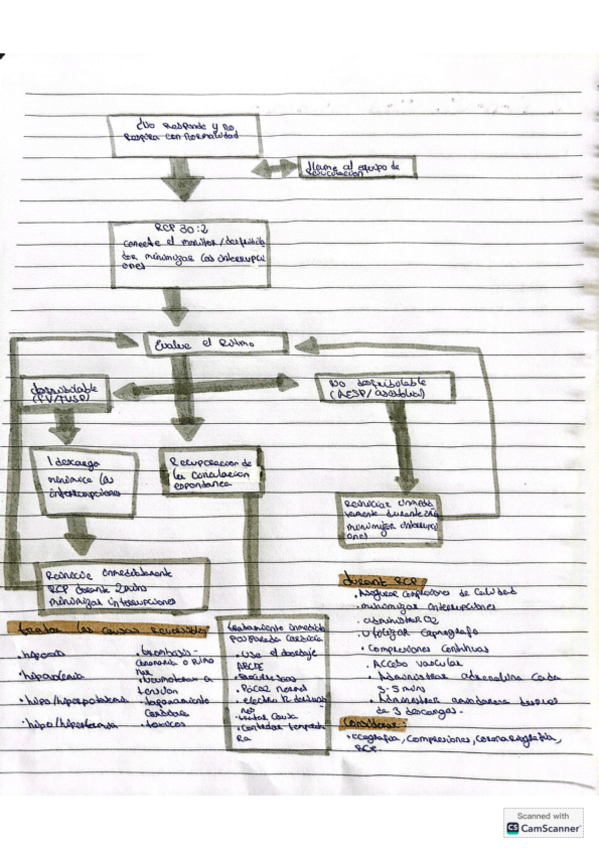 ¿No responde y no
respira con normalidad
llame al equipo de
resucitacion
RCP 30:2
conecte el monitor/desfibrila
dor minimizar las interrupci
ones
Evalue el Ritmo
desfibrilable
(FV/TVSP)
No desfibrilable
(AESP/asistolia)
1 descarga
minimice las
interrupciones
Recuperacion de
la circulacion
espontanea
Reiniciar inmedia
tamente durante 2min
minimizar interrupci
ones
Reinicie inmediatamente
RCP durante 2 mins
minimizar interrupciones
tratar las causas reversibles
• hipoxia
• hipovolemia
• hipo/hiperpotasemia
• hipo/hipertermia
• trombosis-
coronaria o pulmo
nar
• neumotorax a
tension
• taponamiento
cardiaco
• toxicos
tratamiento inmediato
posparada cardiaca
• Use el abordaje
ABCDE
• PaCO2 normal
• electro 12 derivacio
nes
• tratar causa
• controlar temperatu
ra
durante RCP
• Asegurar compresiones de calidad
• minimizar interrupciones
• administrar O2
• utilizar capnografo
• Compresiones continuas
• Acceso vascular
• Administrar adrenalina cada
3-5 mins
• Administrar amiodarona despues
de 3 descargas.
Considerar:
• ecografia, compresiones, coronariografia,
RCP.
Scanned with
CS CamScanner